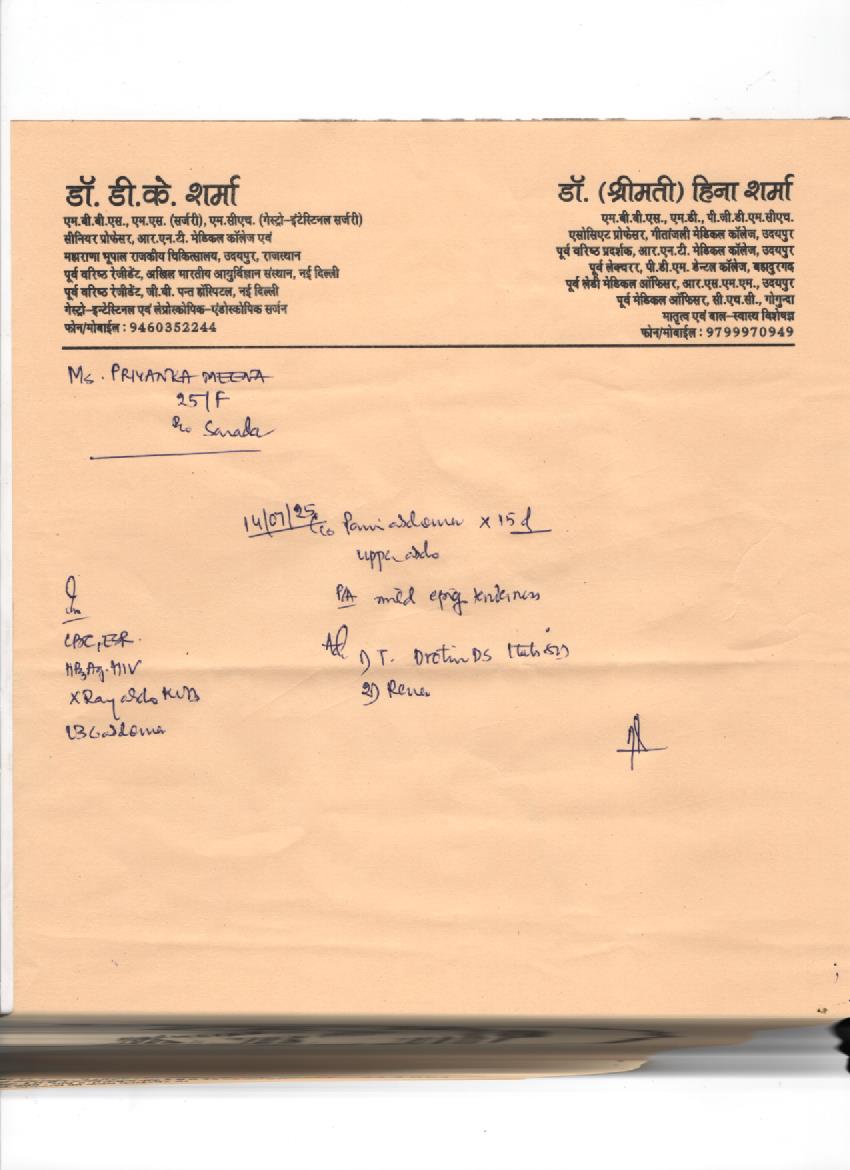 डॉ. डी.के. शर्मा
एम.बी.बी.एस., एम.एस. (सर्जरी), एम.सीएच. (गेस्ट्रो-इंटेस्टिनल सर्जरी)
सीनियर प्रोफेसर, आर.एन.टी. मेडिकल कॉलेज एवं
महाराणा भूपाल राजकीय चिकित्सालय, उदयपुर, राजस्थान
पूर्व वरिष्ठ रेजीडेंट, अखिल भारतीय आयुर्विज्ञान संस्थान, नई दिल्ली
पूर्व वरिष्ठ रेजीडेंट, जी.बी. पन्त हॉस्पिटल, नई दिल्ली
गेस्ट्रो-इन्टेस्टिनल एवं लेप्रोस्कोपिक-एंडोस्कोपिक सर्जन
फोन/मोबाईल : 9460352244
डॉ. (श्रीमती) हिना शर्मा
एम.बी.बी.एस., एम.डी., पी.जी.डी.एम.सीएच.
एसोसिएट प्रोफेसर, गीतांजली मेडिकल कॉलेज, उदयपुर
पूर्व वरिष्ठ प्रदर्शक, आर.एन.टी. मेडिकल कॉलेज, उदयपुर
पूर्व लेक्चरर, पी.डी.एम. डेन्टल कॉलेज, बहादुरगढ़
पूर्व लेडी मेडिकल ऑफिसर, आर.एस.एम.एम., उदयपुर
पूर्व मेडिकल ऑफिसर, सी.एच.सी., गोगुन्दा
मातृत्व एवं बाल-स्वास्थ्य विशेषज्ञ
फोन/मोबाईल : 9799970949
Ms. PRIYANKA MEENA
25/F
R/o Sarada
14/07/25 c/o Pain abdomen x 15d
upper abdo
P/A mild epig tenderness
CBC, ESR.
HBsAg. HIV
X Ray abdo KUB
USG abdomen
Adv
1) T. DS
2)